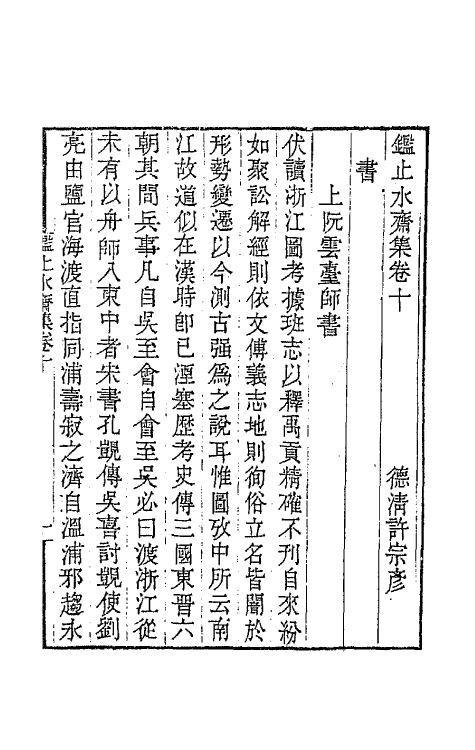 鑑止水齋集卷十
德清許宗彥
書
上阮雲臺師書
伏讀浙江圖考據班志以釋禹貢精確不刋自來紛
如聚訟解經則依文傅義志地則徇俗立名皆闇於
形勢變遷以今測古强爲之說耳惟圖攷中所云南
江故道似在漢時卽已湮塞歷考史傳三國東晋六
朝其間兵事凡自吳至會自會至吳必曰渡浙江從
未有以舟師入東中者宋書孔覬傳吳喜討覬使劉
亮由鹽官海渡直指同浦壽寂之濟自溫浦邪趨永
鑑止水齋集卷十
一